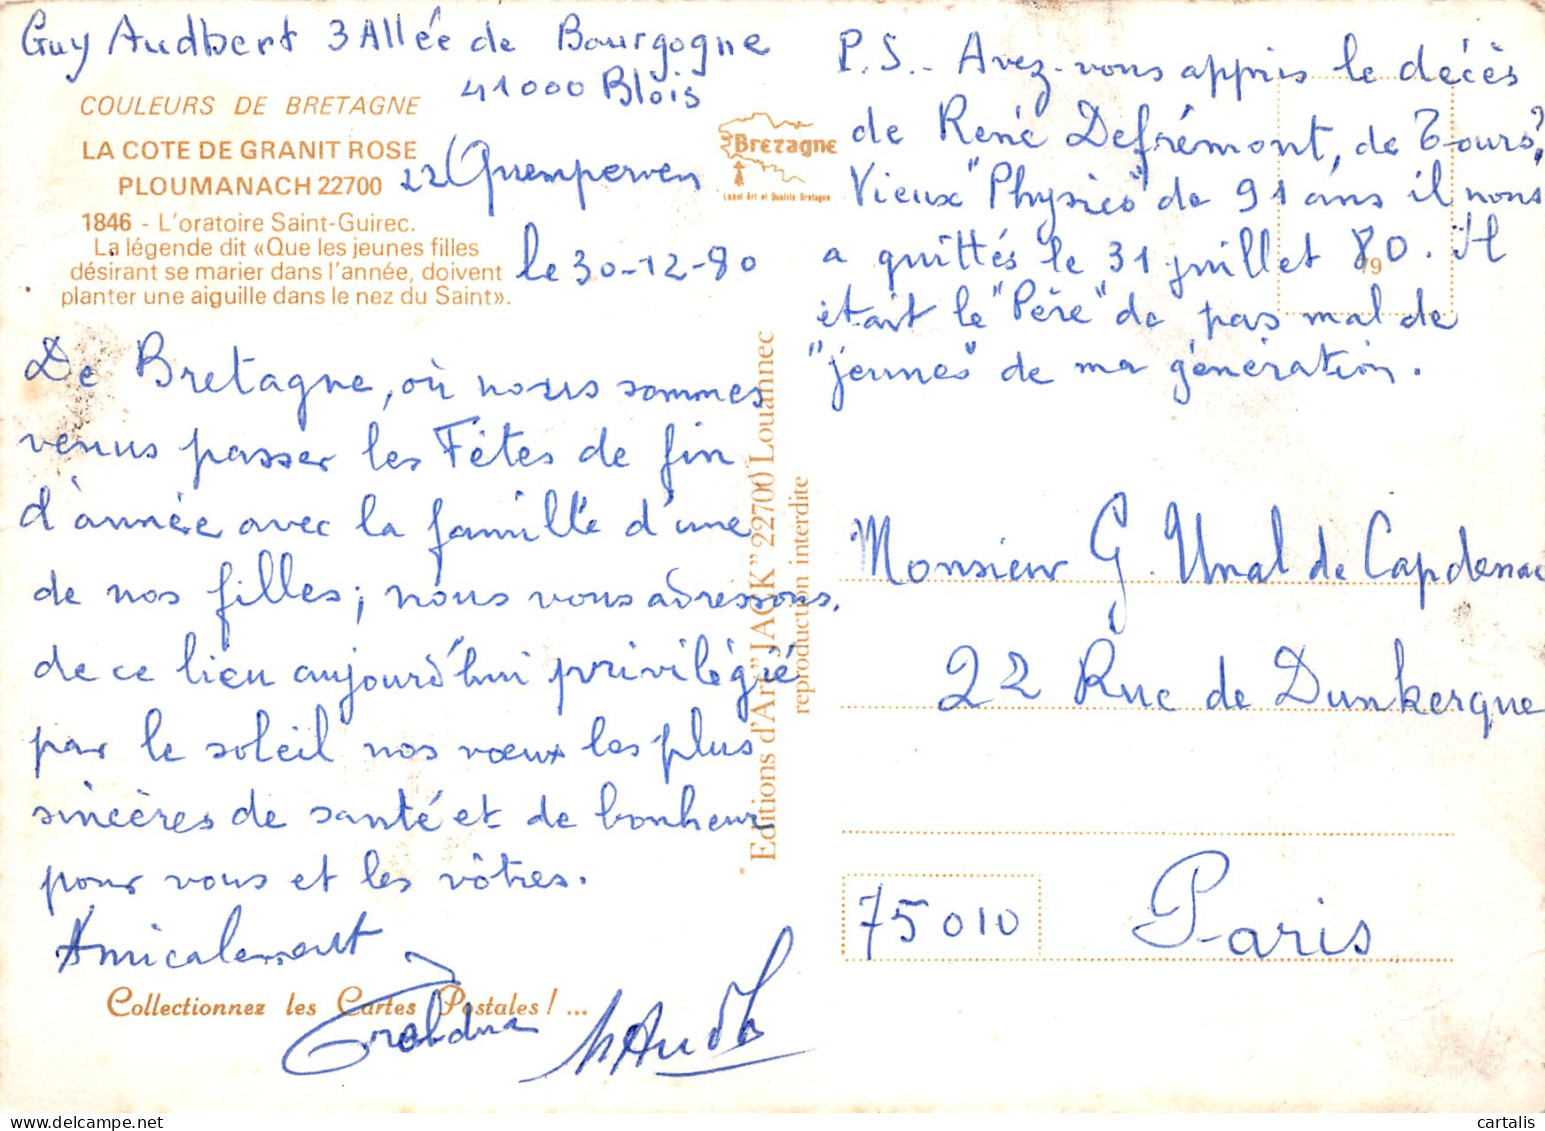 Guy Audbert 3 Allée de Bourgogne
41000 Blois
COULEURS DE BRETAGNE
LA COTE DE GRANIT ROSE
PLOUMANACH 22700
22 Quemperven
1846 - L'oratoire Saint-Guirec.
La légende dit «Que les jeunes filles
désirant se marier dans l'année, doivent
planter une aiguille dans le nez du Saint».
le 30-12-80
De Bretagne, où nous sommes
venus passer les Fêtes de fin
d'année avec la famille d'une
de nos filles; nous vous adressons,
de ce lieu aujourd'hui privilégié
par le soleil nos vœux les plus
sincères de santé et de bonheur
pour vous et les vôtres.
Amicalement
Collectionnez les Cartes Postales! ...
Bretagne
Label Art et Qualité Bretagne
Editions d'Art "JACK" 22700 Louannec
reproduction interdite
P.S.- Avez-vous appris le décès
de René Defrémont, de Tours?
Vieux "Physico" de 91 ans il nous
a quittés le 31 juillet 80. Il
était le "Père" de pas mal de
"jeunes" de ma génération.
Monsieur G. Unal de Capdenac
22 Rue de Dunkerque
75010 Paris
cartalis